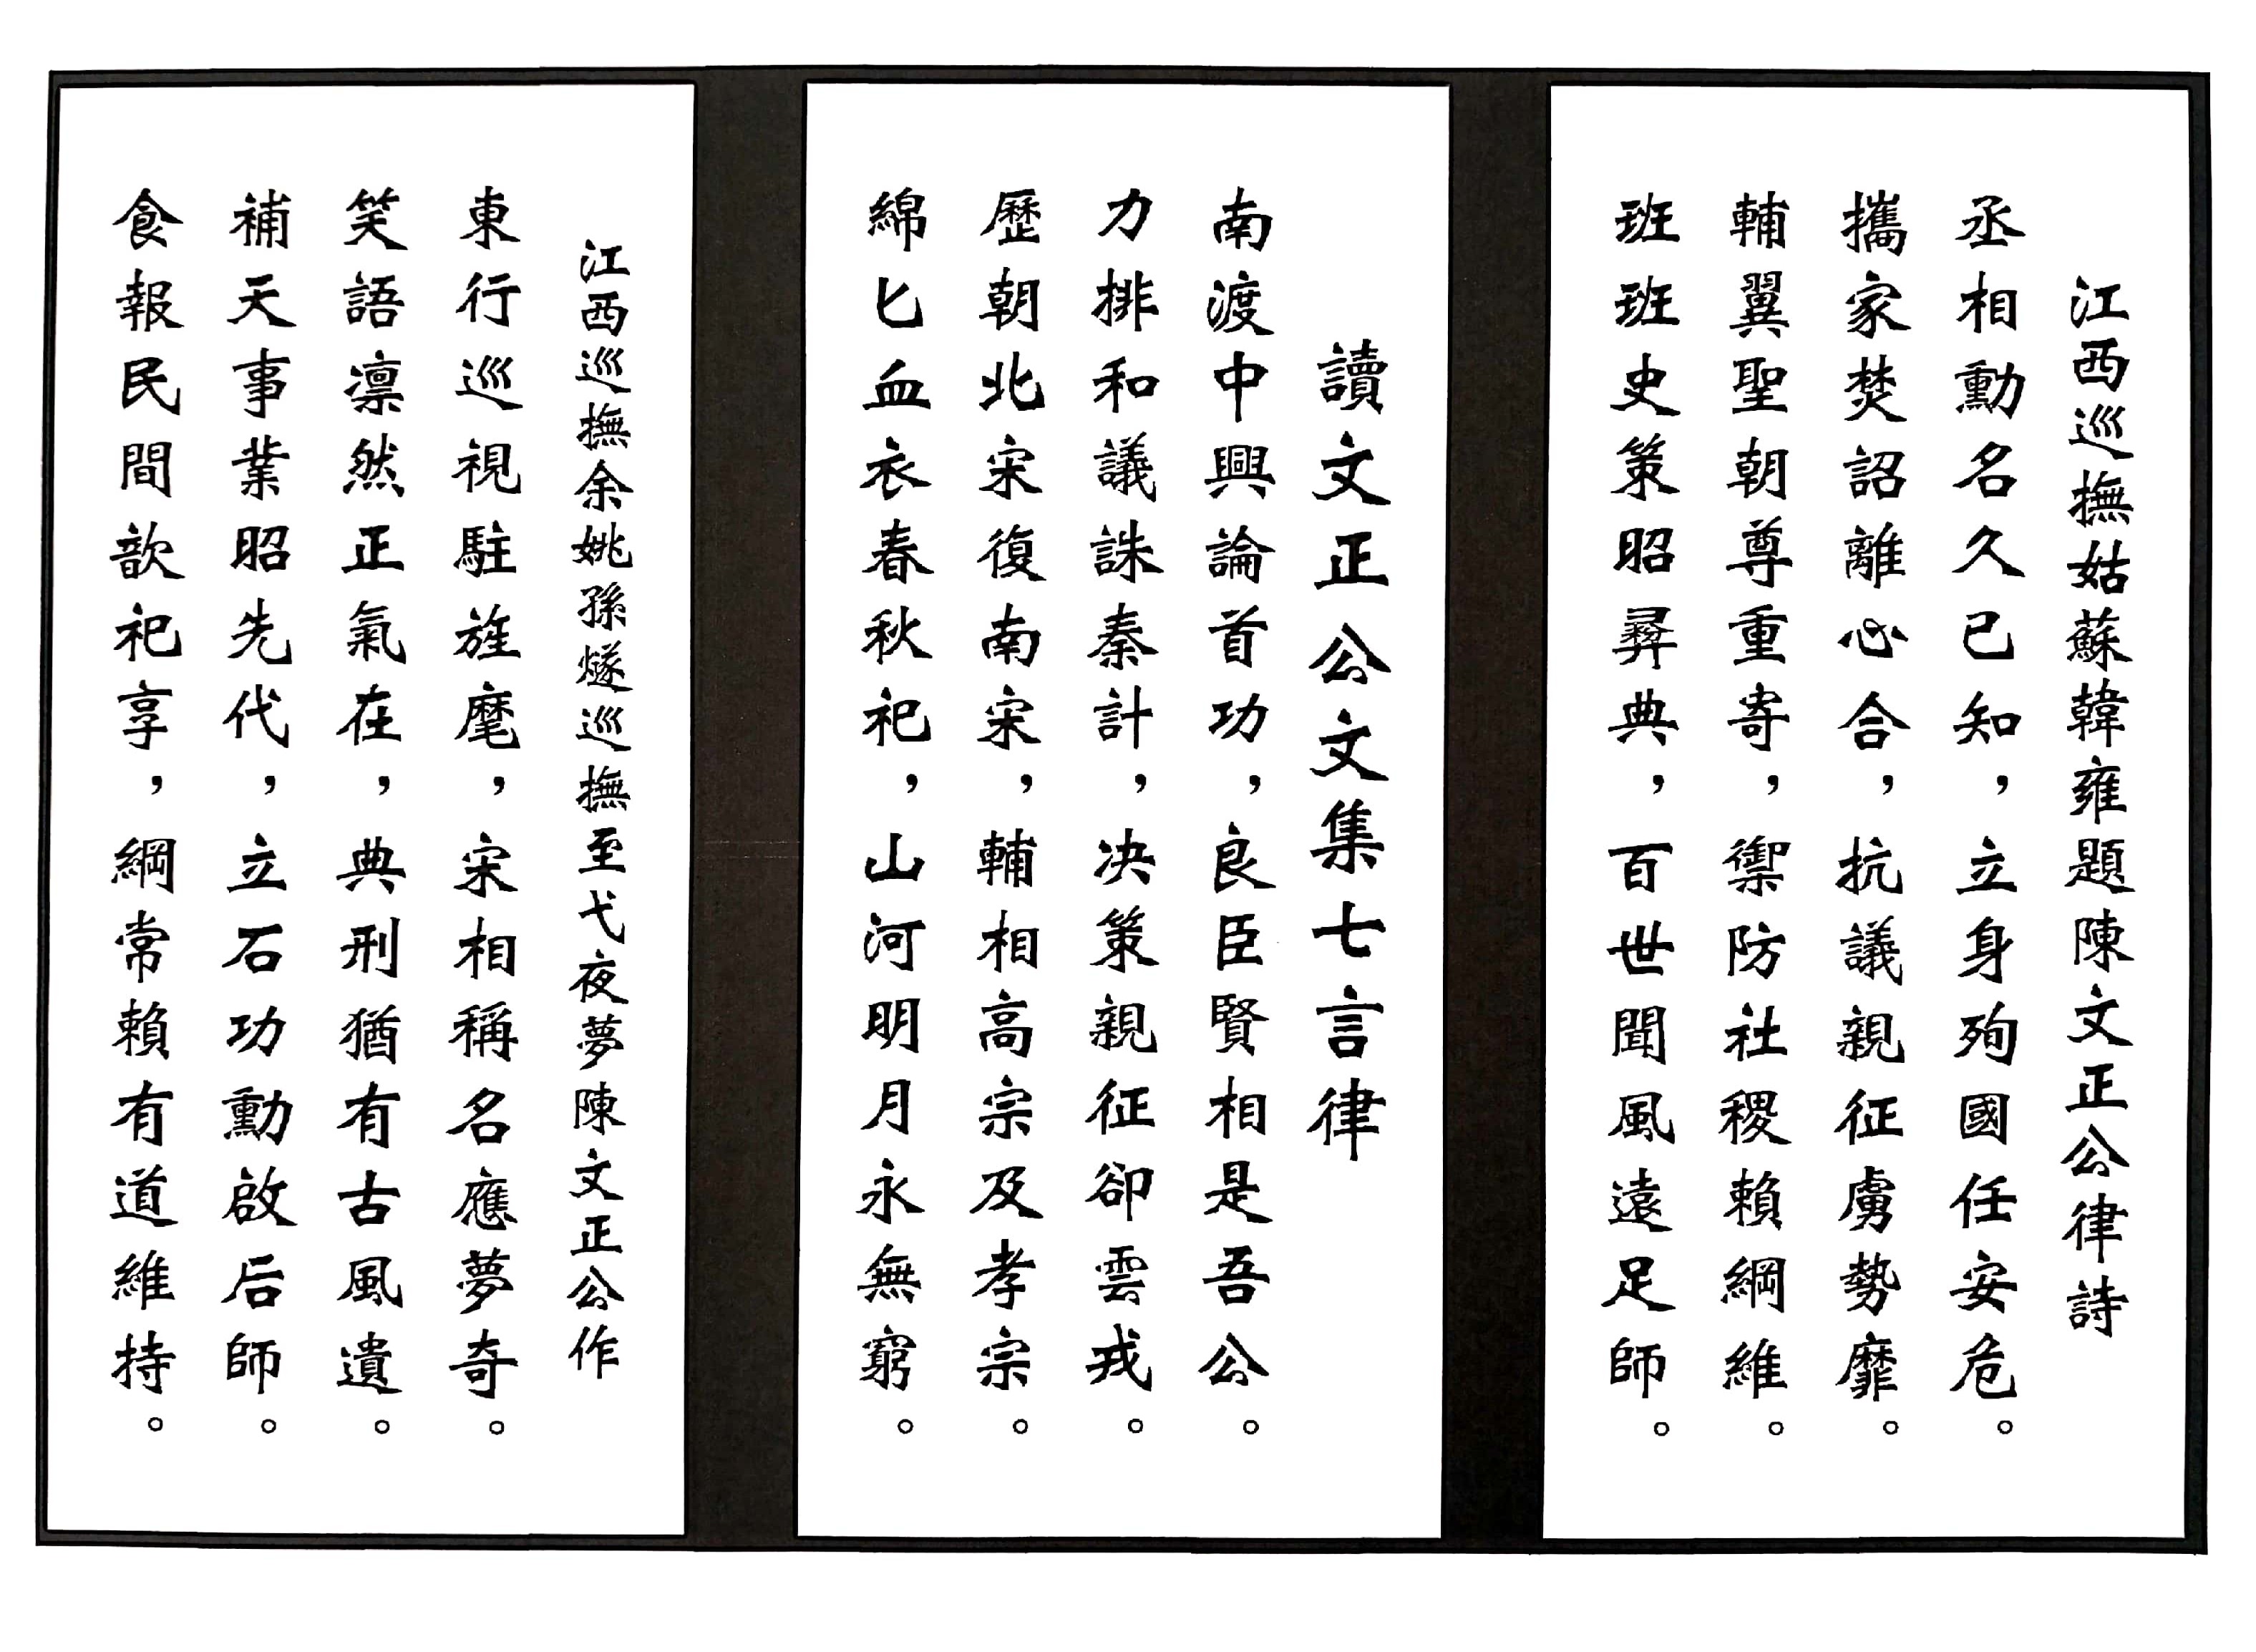 江西巡撫姑蘇韓雍題陳文正公律詩
丞相勳名久已知，立身殉國任安危。
攜家焚詔離心合，抗議親征虜勢靡。
輔翼聖朝尊重寄，禦防社稷賴綱維。
班班史策昭彝典，百世聞風遠足師。
讀文正公文集七言律
南渡中興論首功，良臣賢相是吾公。
力排和議誅秦計，决策親征卻雲戎。
歷朝北宋復南宋，輔相高宗及孝宗。
綿匕血衣春秋祀，山河明月永無窮。
江西巡撫余姚孫燧巡撫至弋夜夢陳文正公作
東行巡視駐旌麾，宋相稱名應夢奇。
笑語凛然正氣在，典刑猶有古風遺。
補天事業昭先代，立石功勳啟后師。
食報民間歆祀享，綱常賴有道維持。